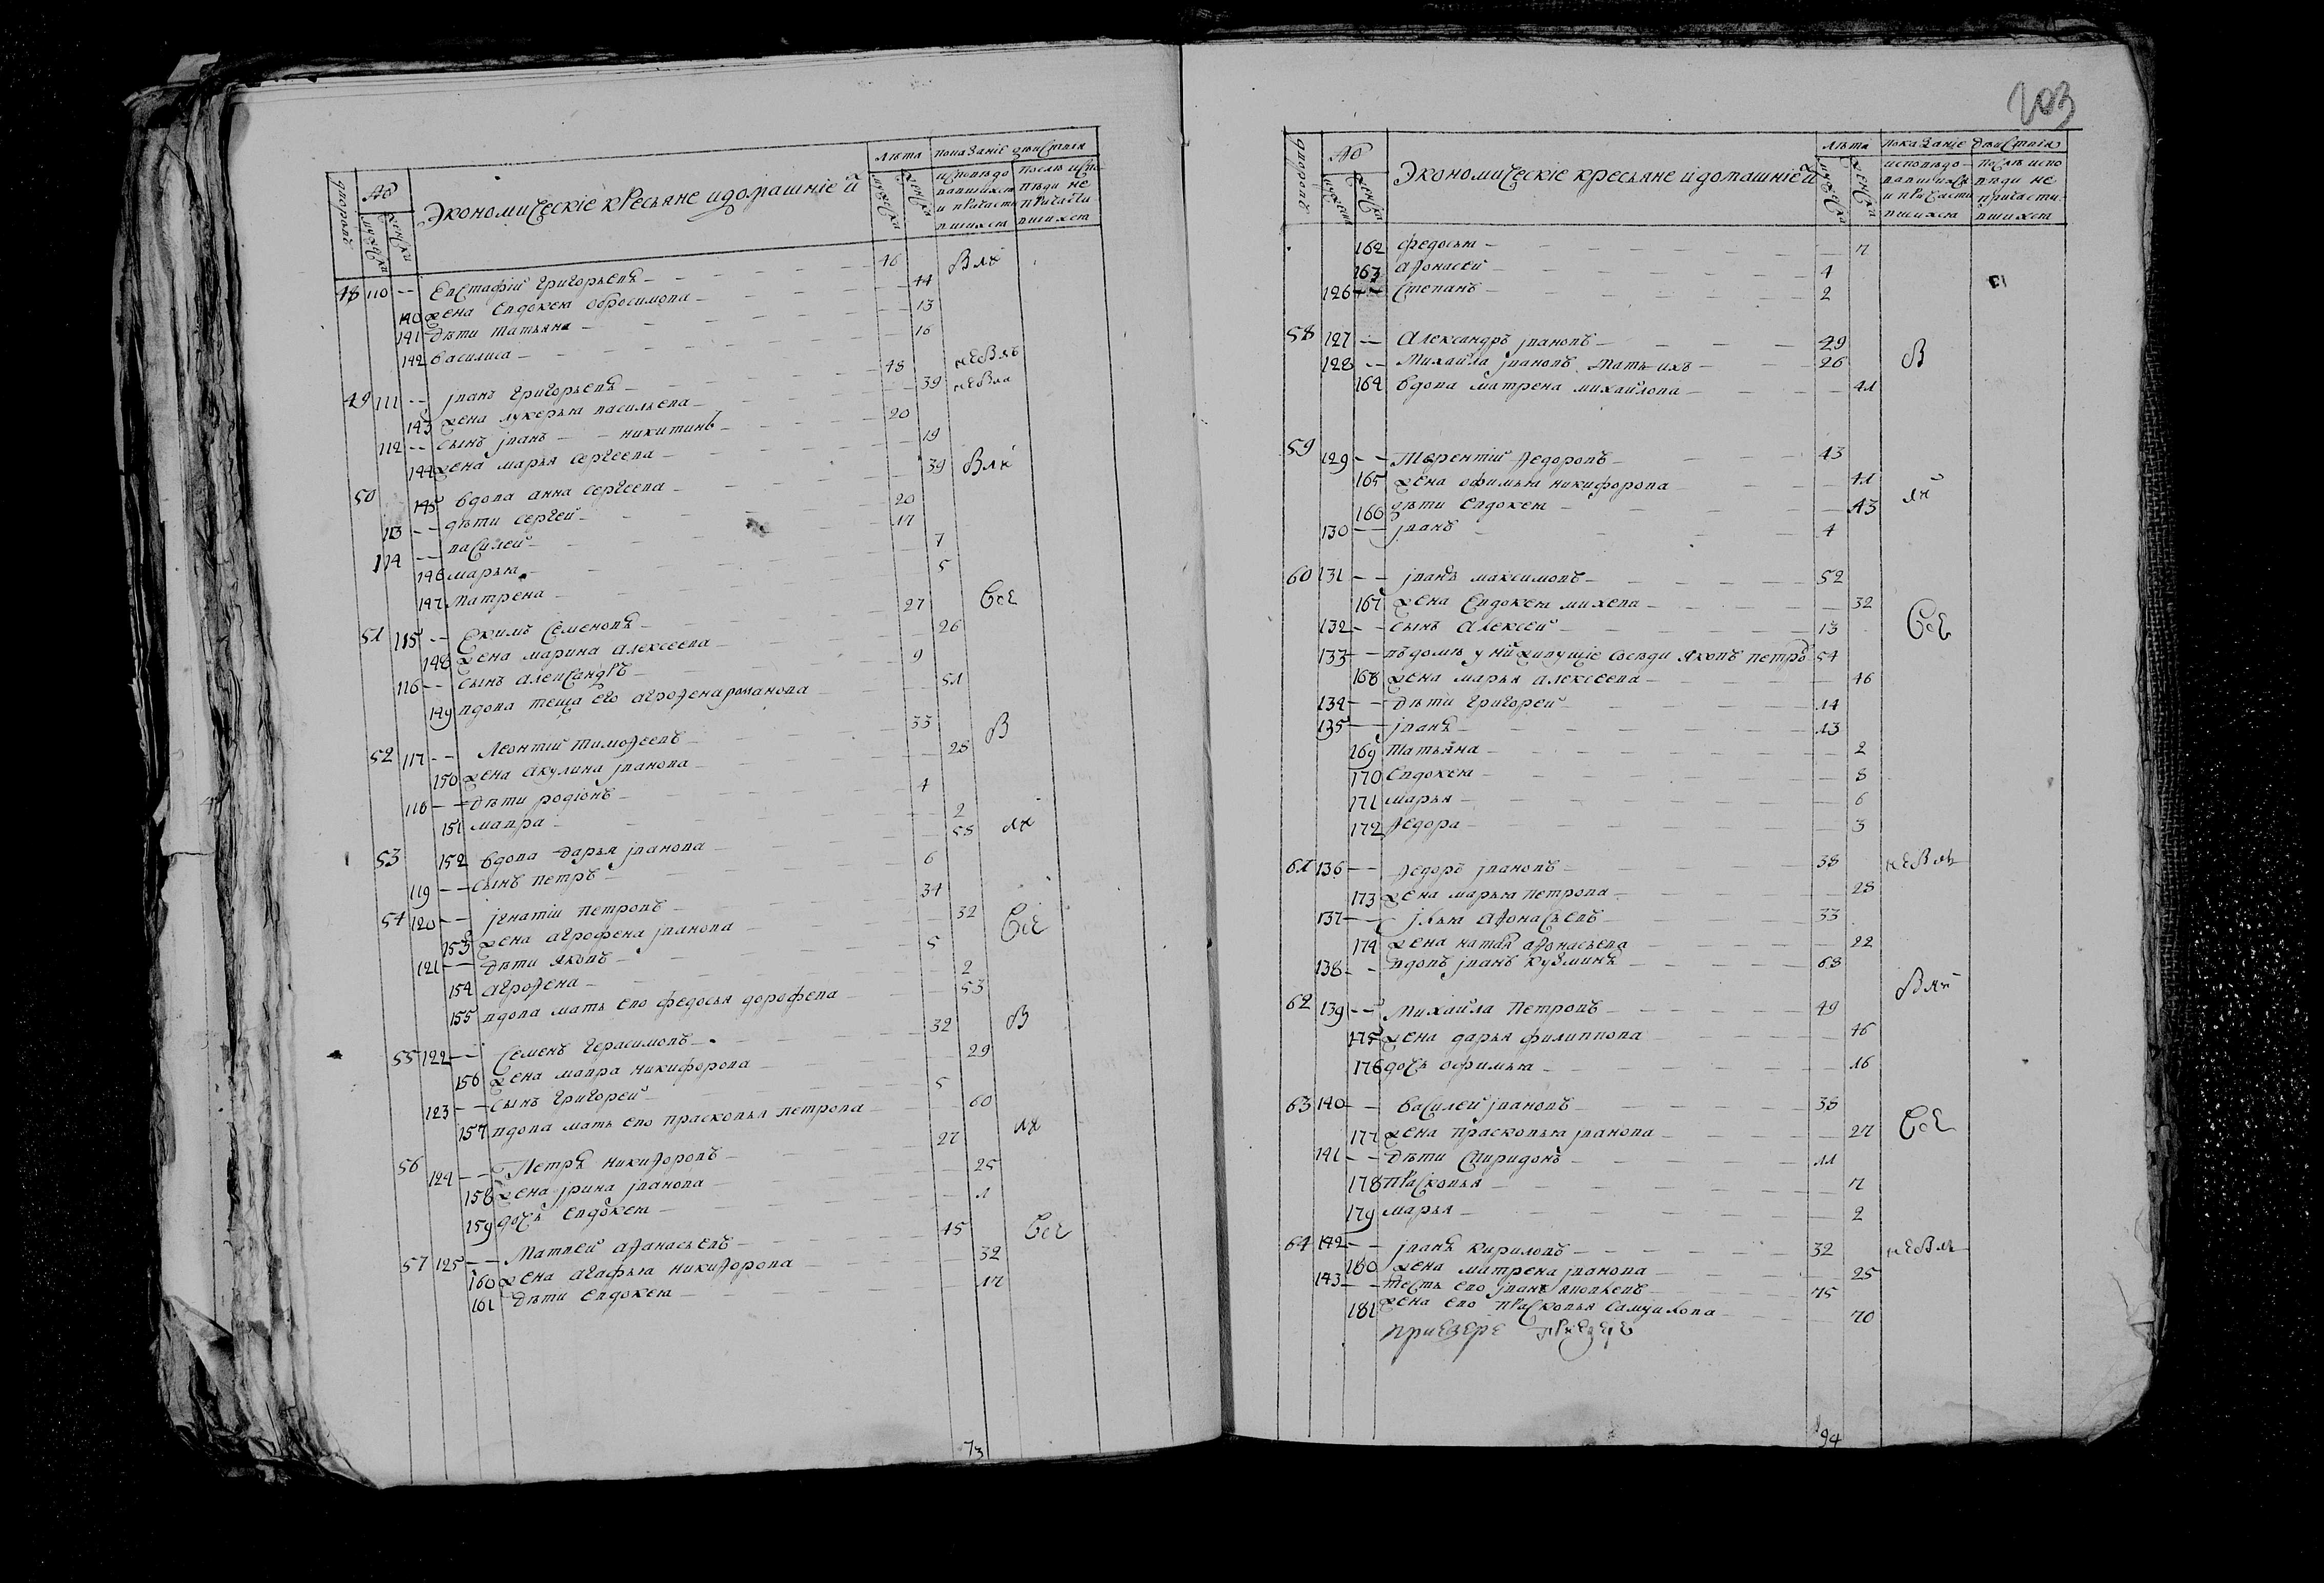 203
дворовъ № мужска женска Экономическіе кресьяне и домашніе й лѣта мужска женска показаніе дѣйствія
исповѣдо вавшихся и причасти вшихся
послѣ испо вѣди не причасти вшихся
48 110 -- Евстафій Григорьевъ 46
140 жена Евдокея Обросимова 44
141 дѣти Татьяна 13
142 Василиса 16
49 111 -- Іванъ Григорьевъ 48
143 жена Лукерья Васильева 39
112 -- сынъ Іванъ Никитинъ 20
144 жена Марья Сергеева 19
50 145 вдова Анна Сергеева 39
113 -- дѣти Сергей 20
114 -- Василей 17
146 Марья 7
147 Матрена 5
51 115 -- Екимъ Семеновъ 27 Всѣ
148 жена Марина Алексеева 26
116 -- сынъ Александръ 9
149 вдова теща его Агрофена Романова 51
52 117 -- Леонтій Тимофеевъ 33 В
150 жена Акулина Іванова 28
118 -- дѣти Родіонъ 4
151 Мавра 2
53 152 вдова Дарья Іванова 58
119 -- сынъ Петръ 6
54 120 -- Ігнатіи Петровъ 34
153 жена Агрофена Іванова 32 Всѣ
121 -- дѣти Яковъ 5
154 Агрофена 2
155 вдова мать ево Федосья Дорофева 53
55 122 -- Семенъ Герасимовъ 32 В
156 жена Мавра Никифорова 29
123 -- сынъ Григорей 5
157 вдова мать ево Прасковья Петрова 60
56 124 -- Петръ Никифоровъ 27
158 жена Ірина Іванова 25
159 дочь Евдокея 1
57 125 -- Матвей Афанасьевъ 45 Всѣ
160 жена Агафья Никифорова 32
161 дѣти Евдокея 17
73
дворовъ № мужска женска Экономическіе кресьяне и домашніе й лѣта мужска женска показаніе дѣйствія
исповѣдо вавшихся и причасти вшихся
послѣ испо вѣди не причасти вшихся
162 Федосья 7
163 Афонасей 4
126 -- Степанъ 2
58 127 -- Александръ Івановъ 29
128 -- Михайла Івановъ мать ихъ 26 В
164 вдова Матрена Михайлова 41
59 129 -- Терентій Федоровъ 43
165 жена Офимья Никифорова 41
166 дѣти Евдокея 13
130 -- Іванъ 4
60 131 -- Іванъ Максимовъ 52
167 жена Евдокея Михева 32
132 -- сынъ Алексей 13 Всѣ
133 -- въ домѣ у ній живущіе сосѣди Яковъ Петро 54
168 жена Марья Алексеева 46
134 -- дѣти Григорей 14
135 -- Іванъ 13
169 Татьяна 2
170 Евдокея 8
171 Марья 6
172 Федора 3
61 136 -- Федоръ Івановъ 38
173 жена Марья Петрова 28
137 -- Ілья Афонасьевъ 33
174 жена Наталя Афонасьева 22
138 -- вдовъ Іванъ Кузминъ 68
62 139 -- Михайла Петровъ 49
175 жена Дарья Филиппова 46
176 дочь Офимья 16
63 140 -- Василей Івановъ 38
177 жена Прасковья Іванова 27 Всѣ
141 -- дѣти Спиридонъ 11
178 Прасковья 7
179 Марья 2
64 142 -- Іванъ Кириловъ 32
180 жена Матрена Іванова 25
143 -- тесть ево Іванъ 75
181 жена ево Прасковья Самуилова 70
94